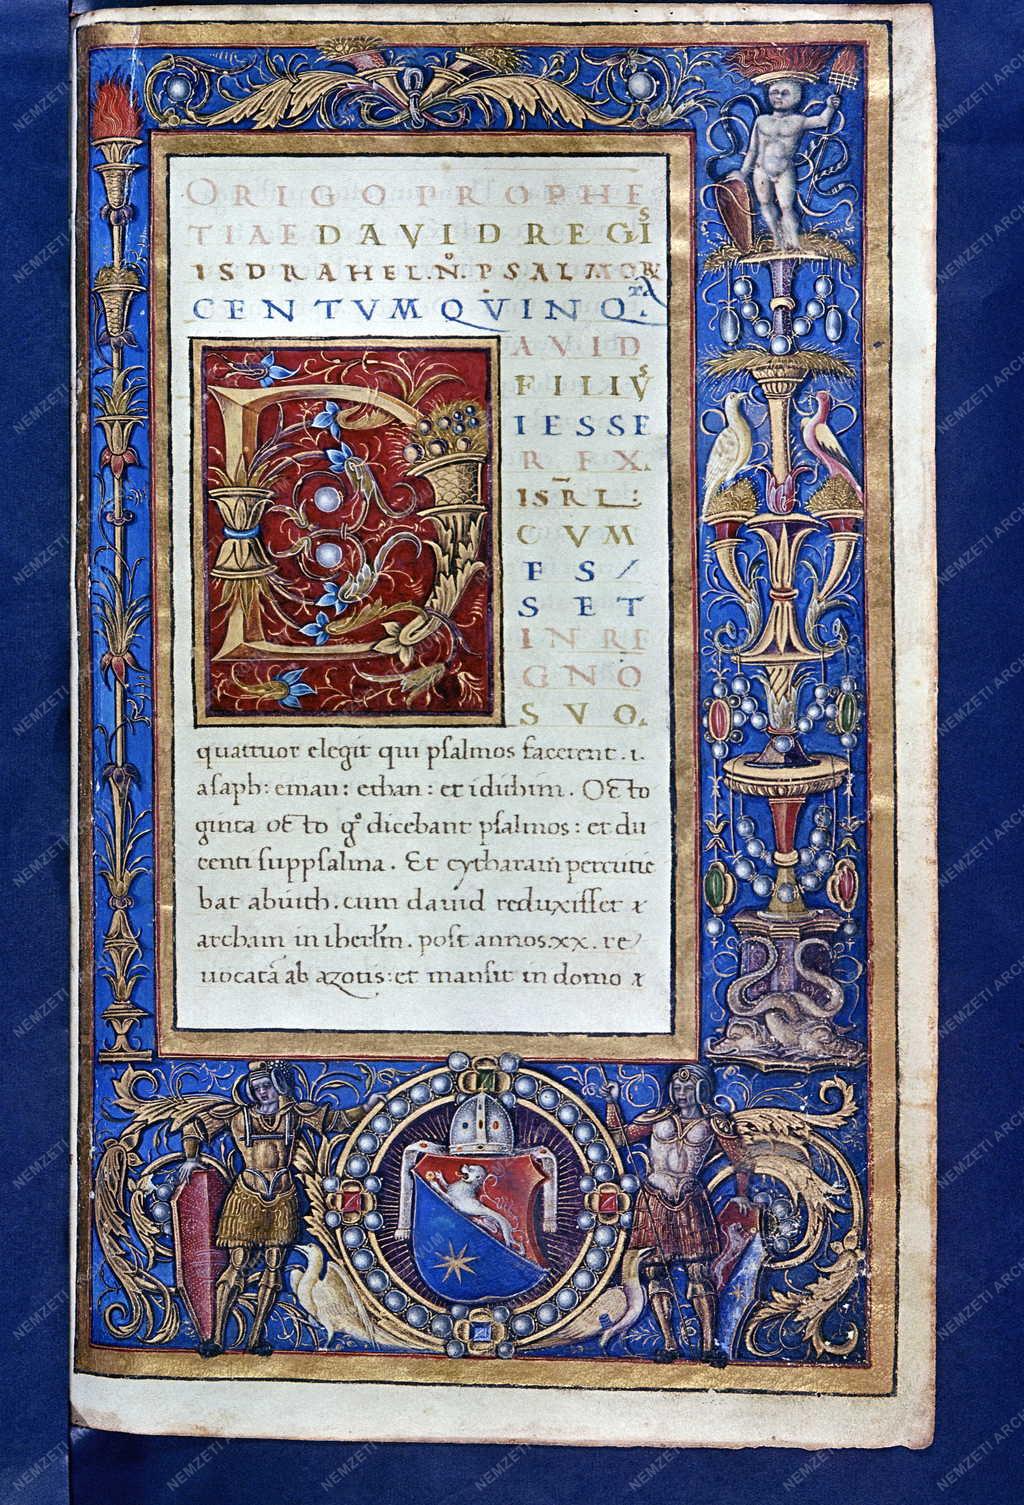 ORIGO PROPHE
TIAE DAVID REGIS
ISDRAHEL. N̊. PSALMOR
CENTVM QVINQ.
D AVID
FILIVS
IESSE
REX.
ISR̄L:
CVM
ES/
SET
IN RE
GNO
SVO.
quattuor elegit qui psalmos facerent. i.
asaph: eman: ethan: et idithim. Octo
ginta octo g° dicebant psalmos: et du
centi suppsalma. Et cytharam percutie
bat abiuth. cum dauid reduxisset &
archam in iherl̄m. post annos. xx. re/
uocatā ab azotis: et mansit in domo &
NEMZETI ARCHÍVUM